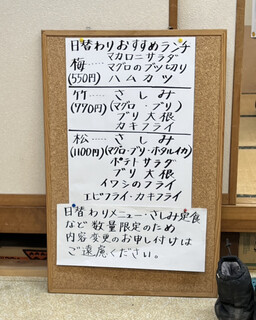 日替わりおすすめランチ
梅……マカロニサラダ
(550円) マグロのブツ切り
ハムカツ
竹……さしみ
(770円) (マグロ・ブリ)
ブリ大根
カキフライ
松……さしみ
(1100円) (マグロ・ブリ・ホタルイカ)
ポテトサラダ
ブリ大根
イワシのフライ
エビフライ・カキフライ
日替わりメニュー・さしみ定食
など数量限定のため
内容変更のお申し付けは
ご遠慮ください。